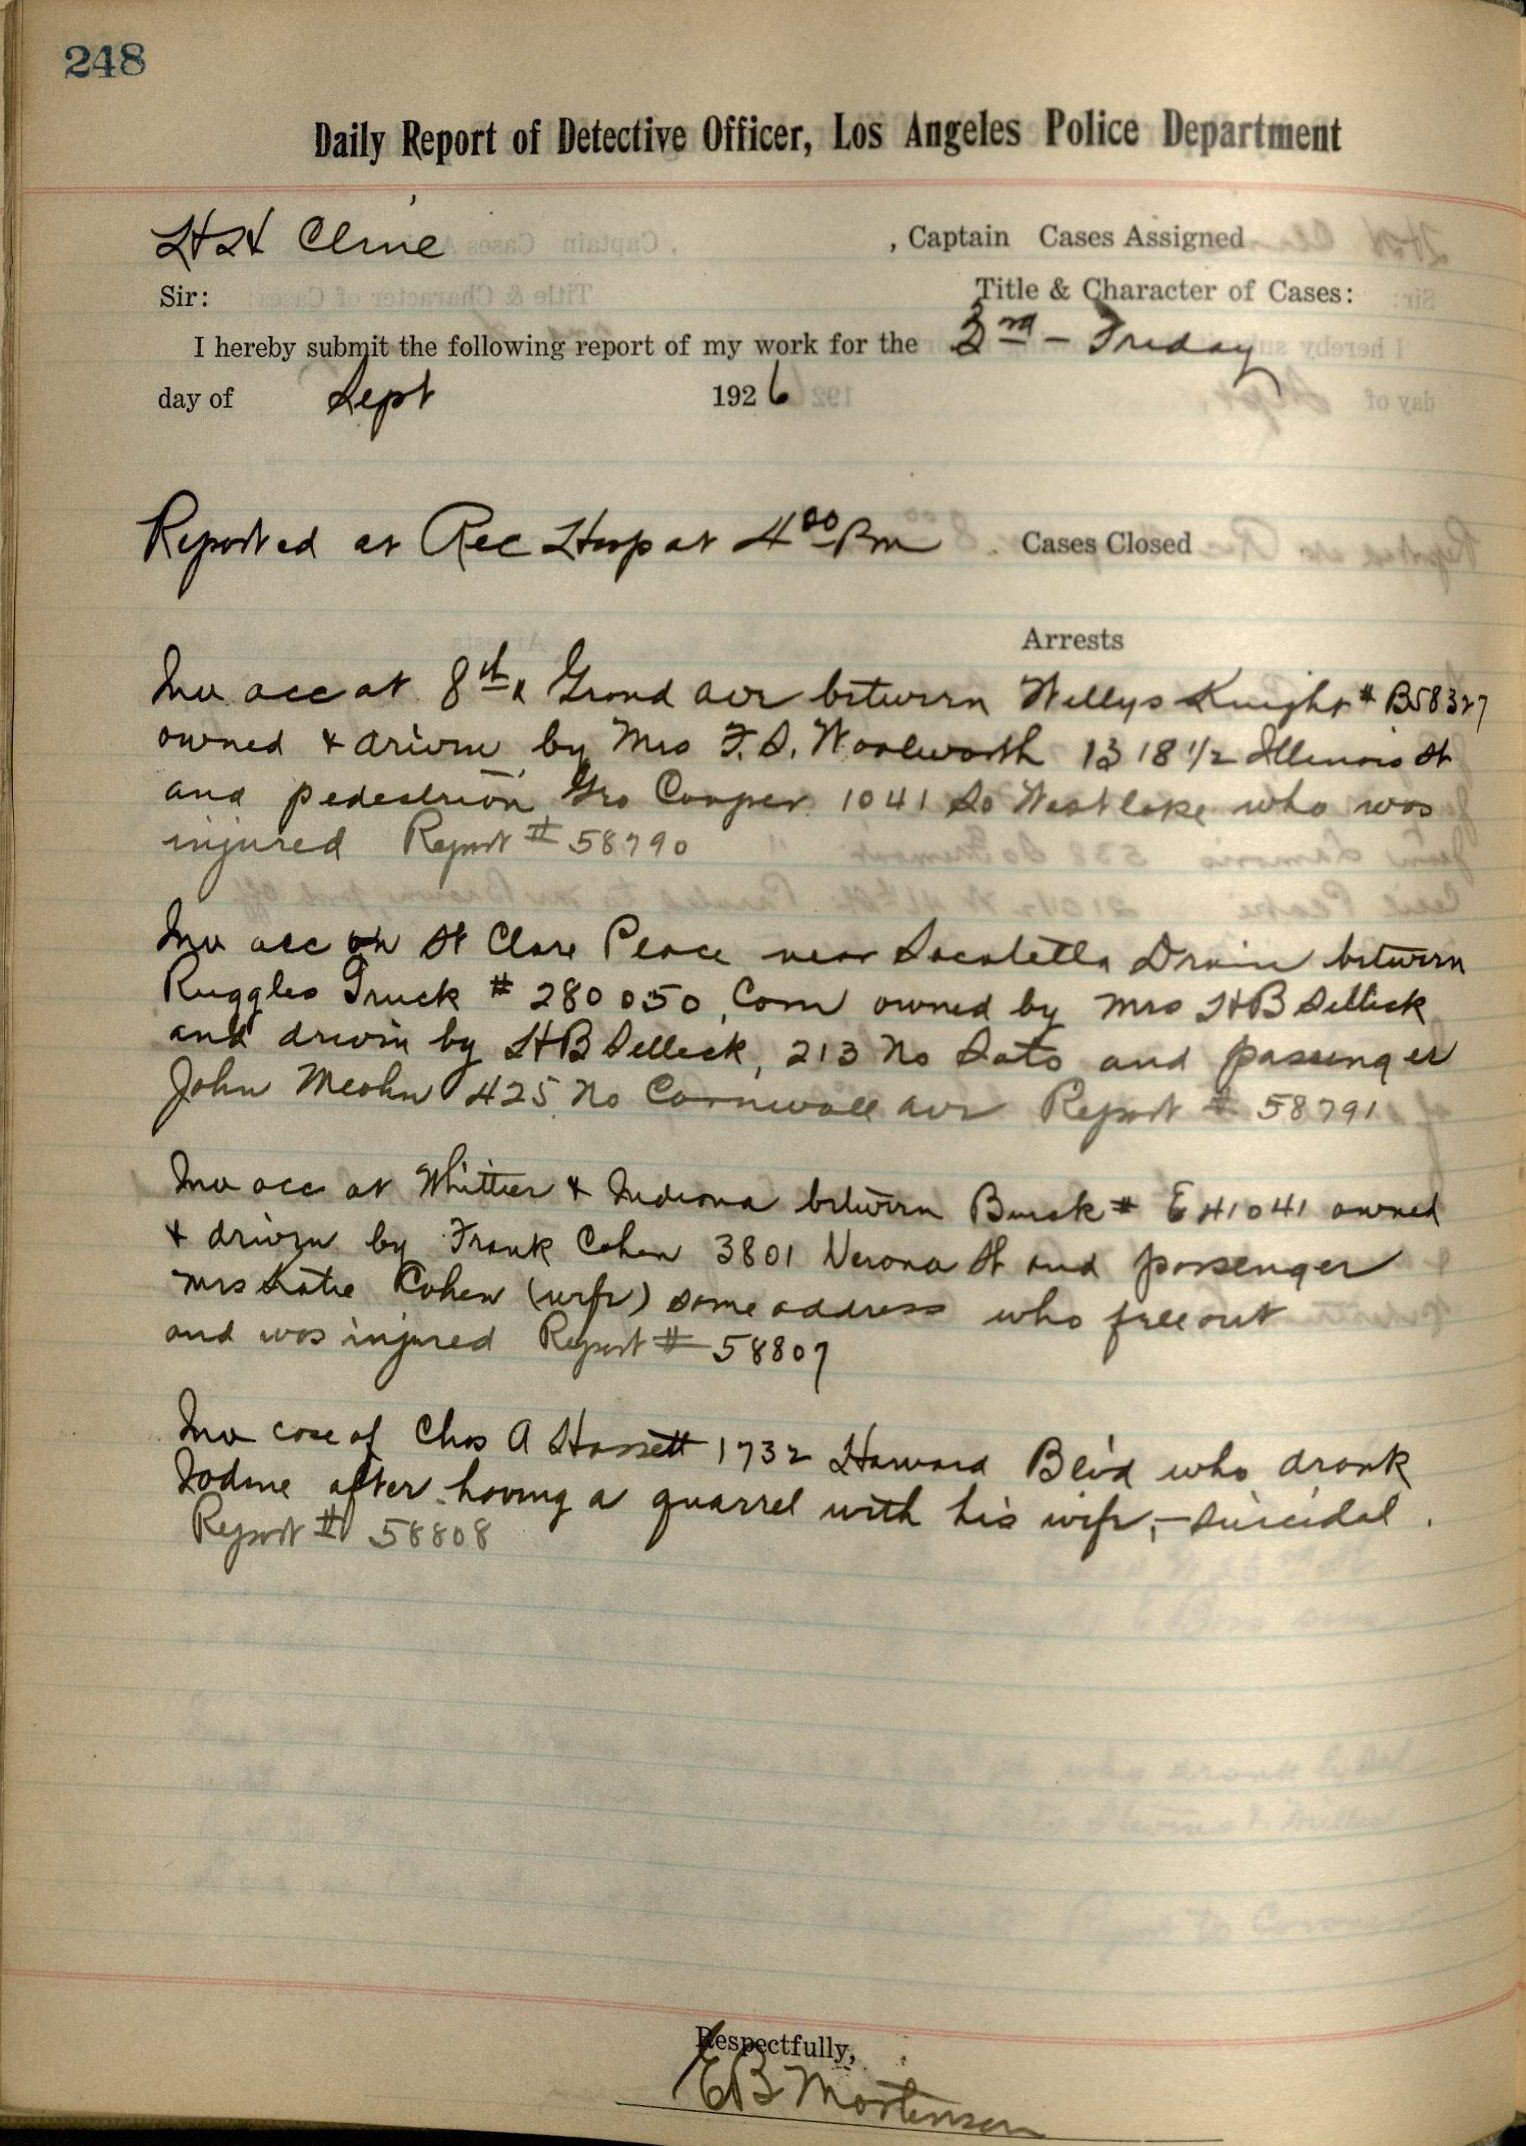 248
Daily Report of Detective Officer, Los Angeles Police Department
H H Cline , Captain Cases Assigned
Sir: Title & Character of Cases:
I hereby submit the following report of my work for the 3rd - Friday
day of Sept 1926
Reported at Rec Hosp at 4 00 Pm Cases Closed
Arrests
Inv acc at 8th & Grand ave between Willys Knight # B58327
owned & driven by Mrs F. S. Woolworth 1318 1/2 Illinois St
and pedestrian, Geo Cooper 1041 So Westlake who was
injured Report # 58790
Inv acc on St Clare Place near Drive between
Ruggles Truck # 280050, Com owned by Mrs H B Selleck
and driven by H B Selleck, 213 No Soto and passenger
John 425 No Cornwall ave Report # 58791
Inv acc at Whittier & Indiana between Buick # E41041 owned
& driven by Frank Cohen 3801 Verona St and passenger
Mrs Katie Cohen (wife) same address who fell out
and was injured Report # 58807
Inv case of Chas A Hassett 1732 Harvard Blvd who drank
Iodine after having a quarrel with his wife, - suicidal.
Report # 58808
Respectfully,
E B Mortensen